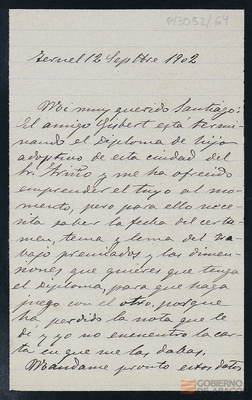 P/3052/64
Teruel 12 Septbre 1902
Moi muy querido Santiago:
El amigo Gisbert está termi
nando el diploma de hijo
adoptivo de esta ciudad del
Sr. Pinto y me ha ofrecido
emprender el tuyo al mo
mento, pero para ello nece
sita saber la fecha del certa
men, tema y lema del tra
bajo premiados y las dimen
siones que quieres que tenga
el diploma, para que haga
juego con el otro, porque
ha perdido la nota que le
dí y yo no encuentro la car
ta en que me las dabas.
Mandame pronto estos datos
GOBIERNO
DE ARAGON